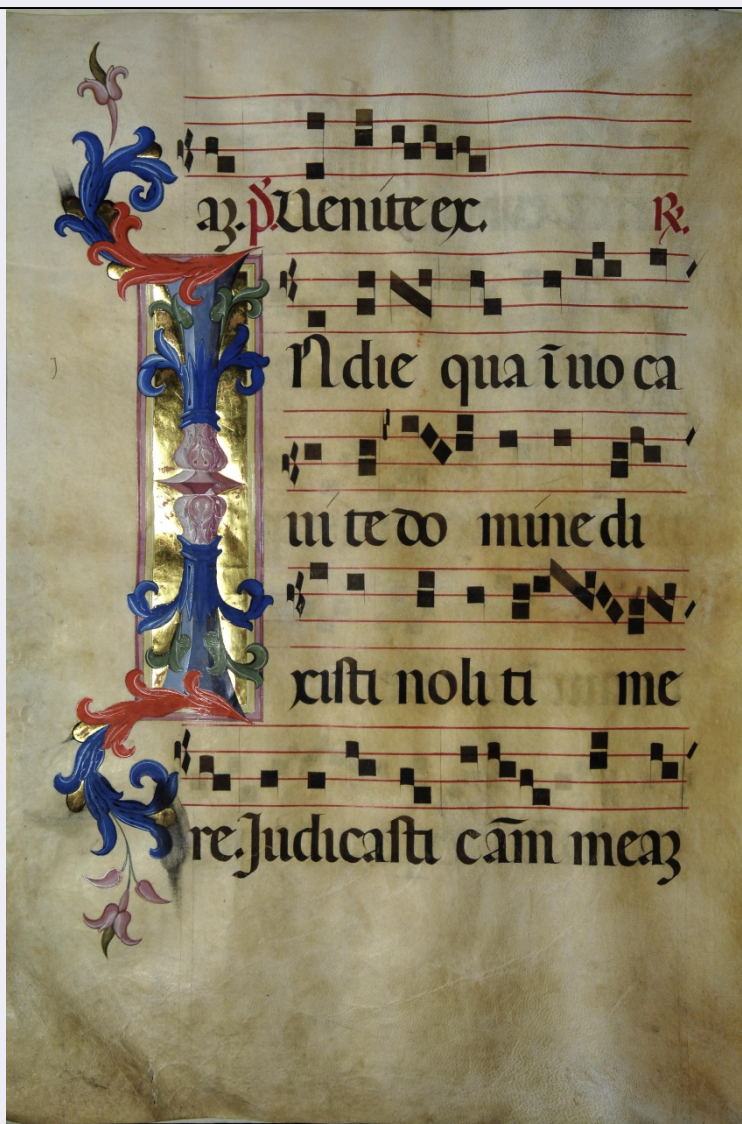 aʒ. p̄. Uenite ex. ℟.
IN die qua ī uo ca
ui te do mine di
xisti noli ti me
re. Judicasti cām meaʒ